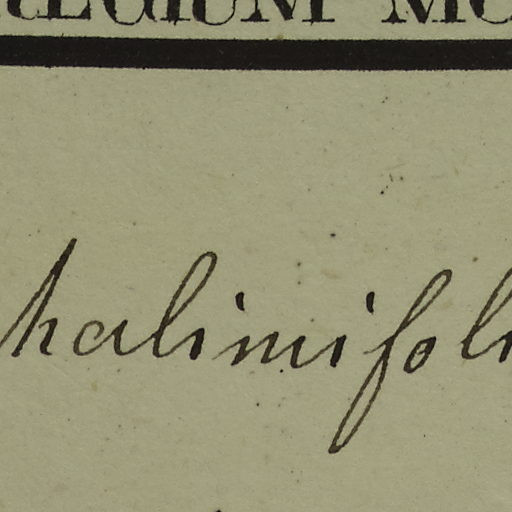 REGIUM MO
halimifoli